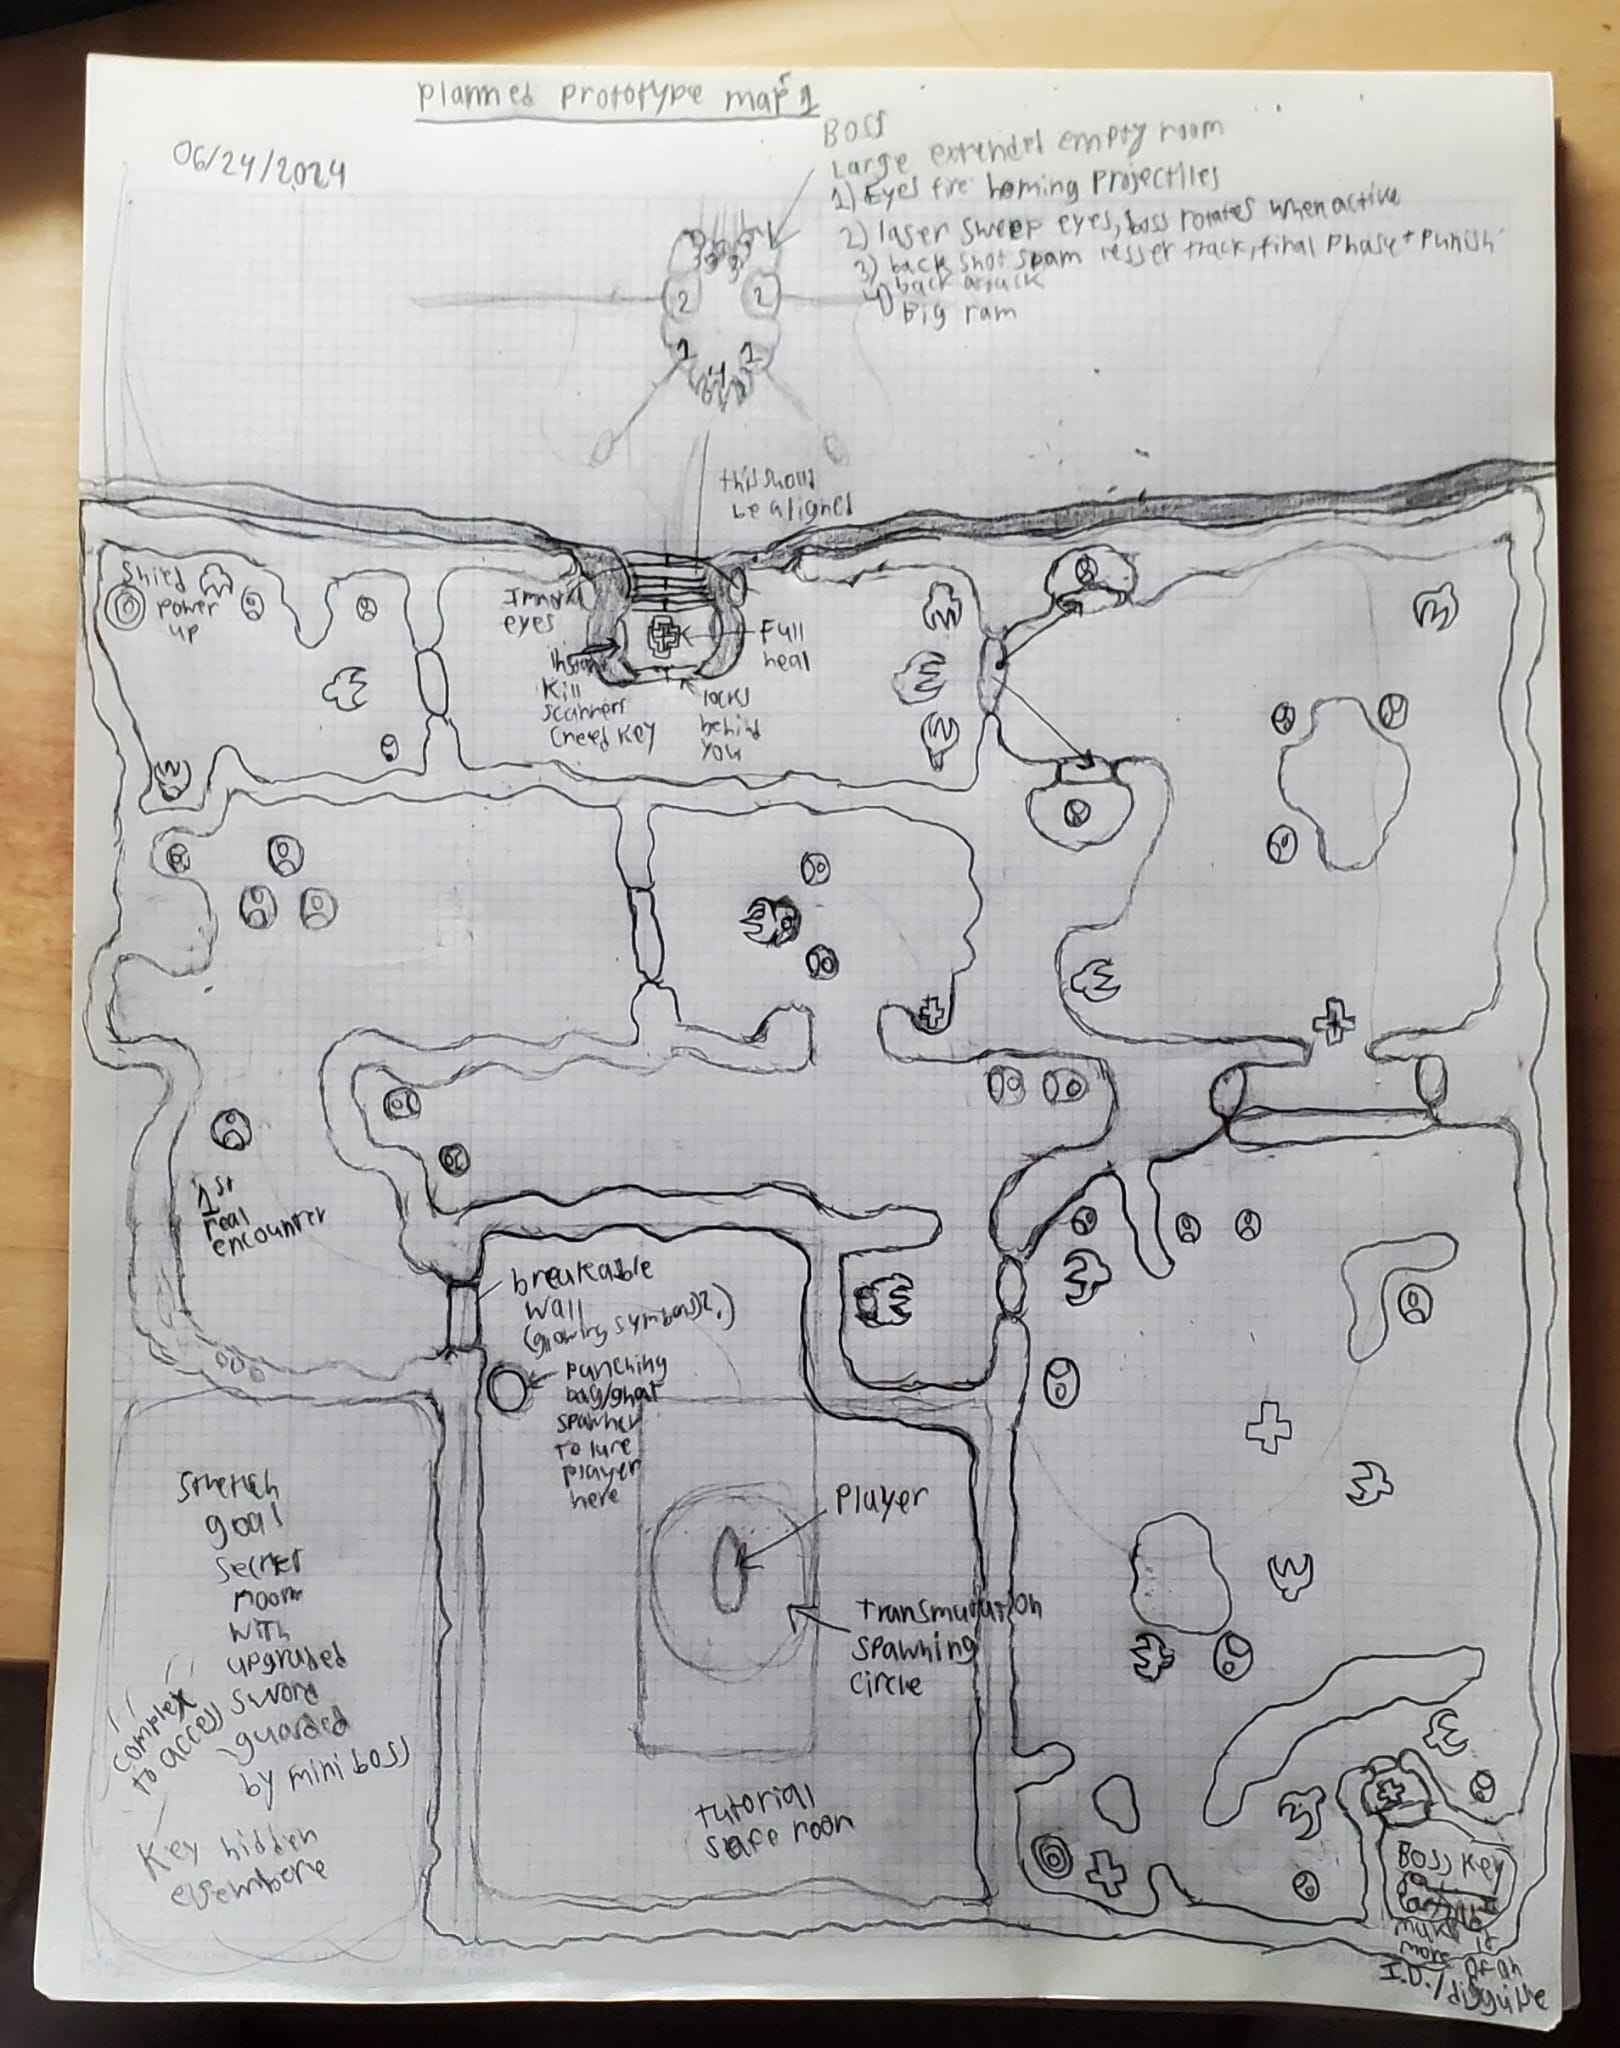 planned prototype map 1
06/24/2024
BOSS
Large extended empty room
1) Eyes fire homing projectiles
2) laser sweep eyes, boss rotates when active
3) back shot spam lesser track, final phase + punish
back attack
4) Big ram
3 3
3 3
2 2
1 1
4
this should
be aligned
Shield
power
up
eyes
Full
heal
kill
scanners
(need key
locks
behind
you
1st
real
encounter
breakable
wall
(glowing symbols?)
punching
bag/ghost
spawner
to lure
player
here
Player
transmutation
spawning
circle
tutorial
safe room
stretch
goal
secret
room
with
upgraded
sword
guarded
by mini boss
complex
to access
Key hidden
elsewhere
Boss key
make it
more of an
I.D./disguise